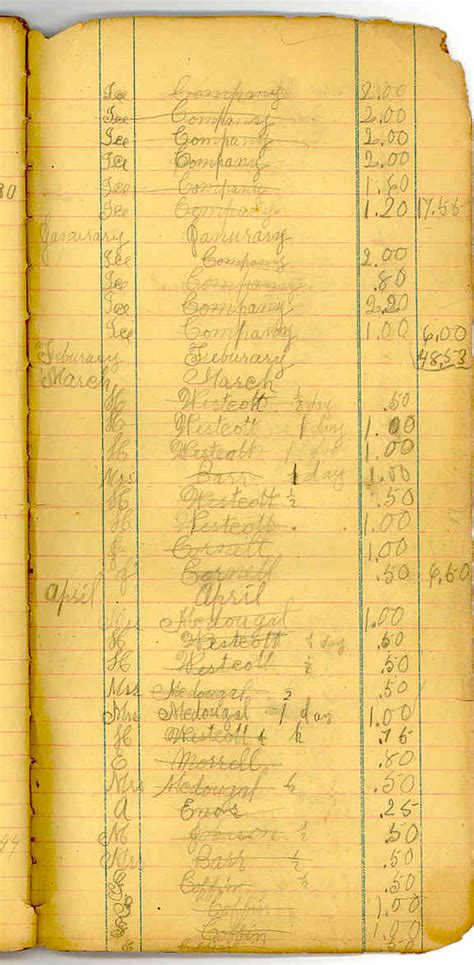 Ice Company 2.00
Ice Company 2.00
Ice Company 2.00
Ice Company 2.00
Ice Company 1.60
Ice Company 1.20 17.55
Janurary Janurary
Ice Company 2.00
Ic Company .80
Ice Company 2.20
Ice Company 1.00 6.00
Feburary Feburary 48.53
March March
H Westcott ½ day .50
H Westcott 1 day 1.00
H Westcott 1 day 1.00
Mrs Barr 1 day 1.00
H Westcott ½ .50
H Westcott . 1.00
J Cornell 1.00
J Cornell .50 6.50
April April
Mrs Mcdougal 1.00
H Westcott ½ day .50
H Westcott ½ .50
Mrs Mcdougal ½ .50
Mrs Mcdougal 1 day 1.00
H Westcott .75
E Morrell .80
Mrs Mcdougal ½ .50
A Enos .25
M ½ .50
Mrs Barr ½ .50
Coffin ½ .50
Coffin 1.00
Coffin 1.00